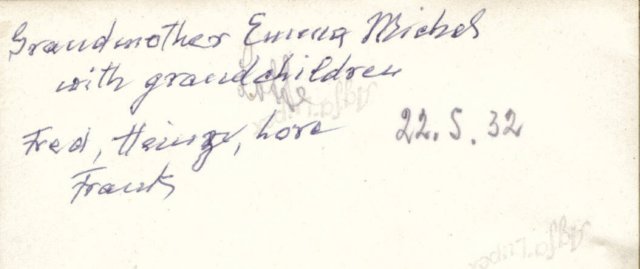 Grandmother Emma Michel
with grandchildren
Fred, Heinz, Lore 22.5.32
Frank